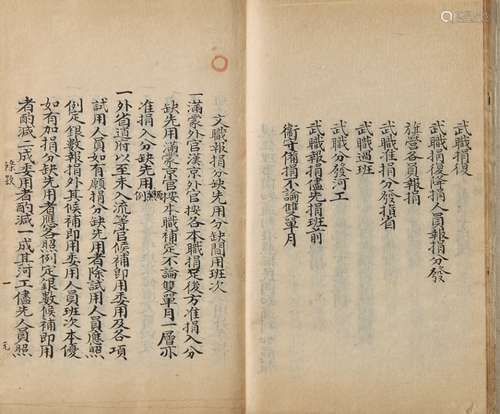 武職捐復
武職捐復降捐人員報捐分發
准營各員報捐
武職准捐分發指省
武職過班
武職分發河工
武職報捐儘先捐班前
衛守備捐不論雙單月
文職報捐分缺先用分缺間用班次
一滿蒙外官漢京外官按各本職捐足後方准捐入分
缺先用滿蒙京官按本職補足不論雙單月一層亦
准捐入分缺先用
一外省道府以至未入流等官候補即用委用及各項
試用人員如有願捐分缺先用者除試用人員應照
例定銀數報捐外其候補即用委用人員班次本優
如有加捐分缺先用者應各照例定銀數候補即用
者酌減二成委用者酌減一成其河工儘先人員照
條款
一
元